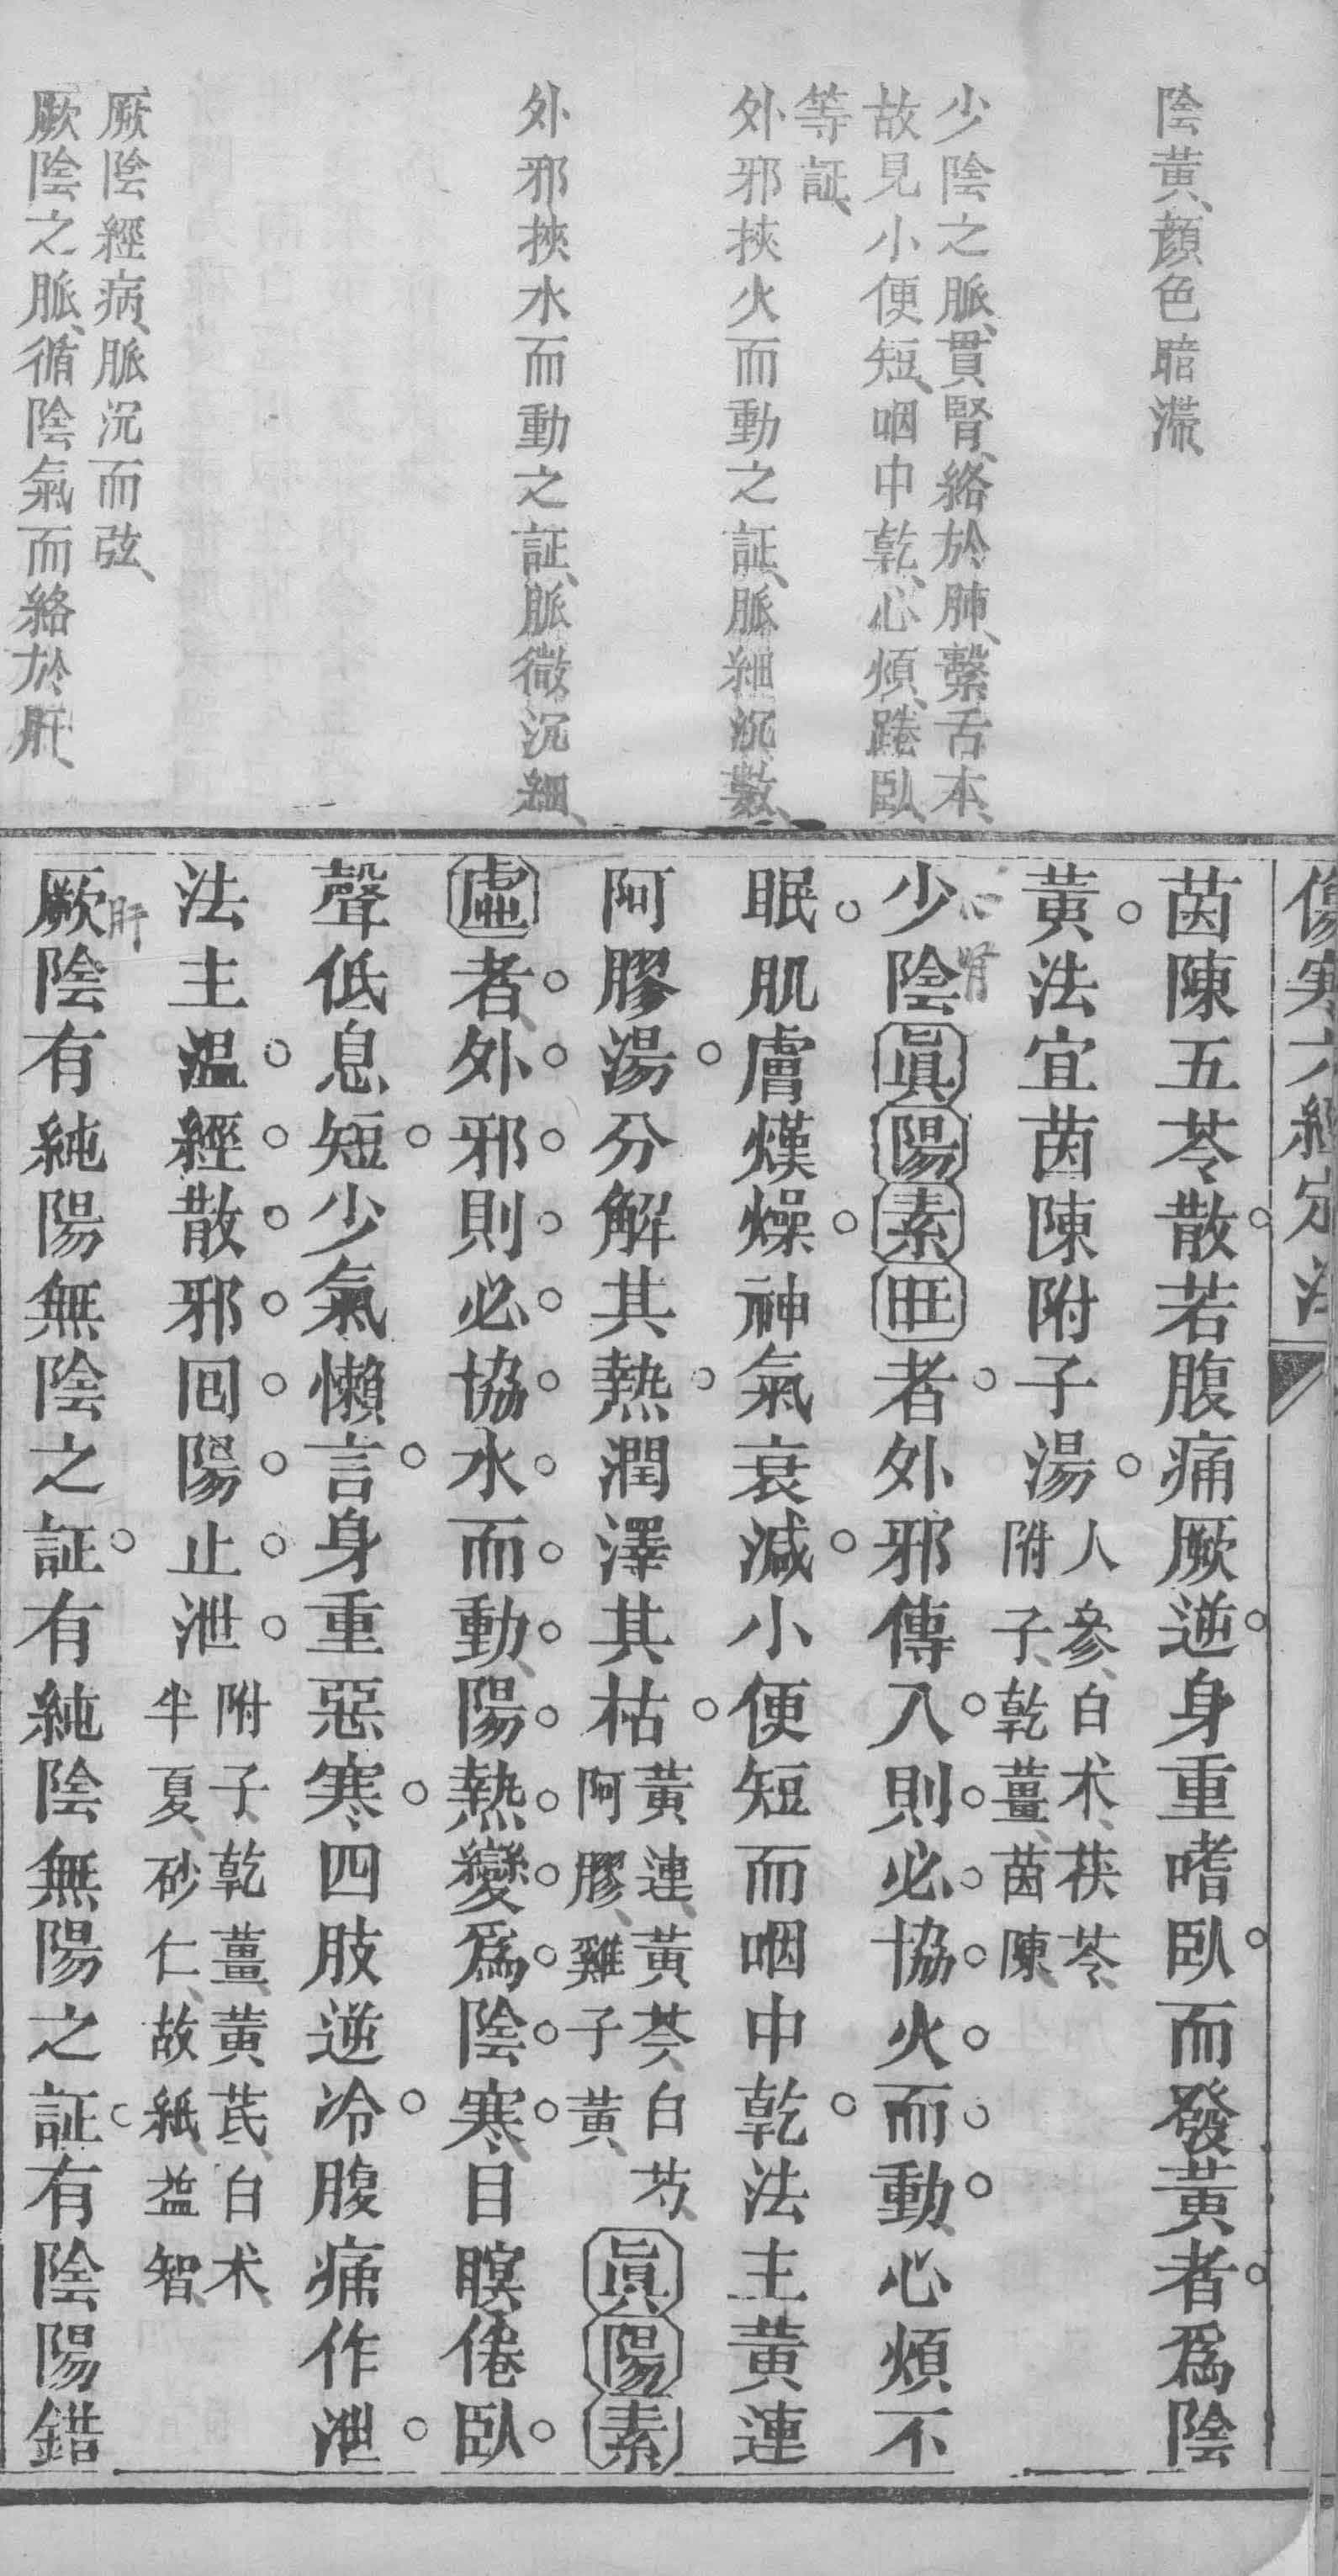 陰黃、顏色暗滯、
少陰之脈、貫腎、絡於肺、繫舌本、
故見小便短、咽中乾、心煩、踡臥、
等証、
外邪挾火而動之証、脈細沉數、
外邪挾水而動之証、脈微沉細、
厥陰經病、脈沉而弦、
厥陰之脈、循陰氣而絡於肝、
傷寒六經定法
茵陳五苓散。若腹痛厥逆。身重嗜臥。而發黃者。爲陰
黃。法宜茵陳附子湯。人參、白术、茯苓、附子、乾薑、茵陳、
心腎
少陰眞陽素旺者。外邪傳入。則。必。協。火。而。動。、心煩不
眠。肌膚熯燥。神氣衰減。小便短而咽中乾。法主黃連
阿膠湯。分解其熱。潤澤其枯。黃連、黃芩、白芍、阿膠、雞子黃、眞陽素
虛者。、外。邪。則。必。協。水。而。動。、陽。熱。變。爲。陰。寒。、目瞑倦臥。
聲低息短。少氣懶言。身重惡寒。、四肢逆冷。腹痛作泄。
法主溫。經。散。邪。囘。陽。止。泄。附子、乾薑、黃芪、白术、半夏、砂仁、故紙、益智、
肝
厥陰有純陽無陰之証。有純陰無陽之証。有陰陽錯